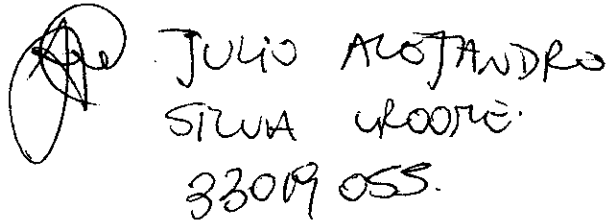 JULIO ALEJANDRO
SILVA
33019 055.